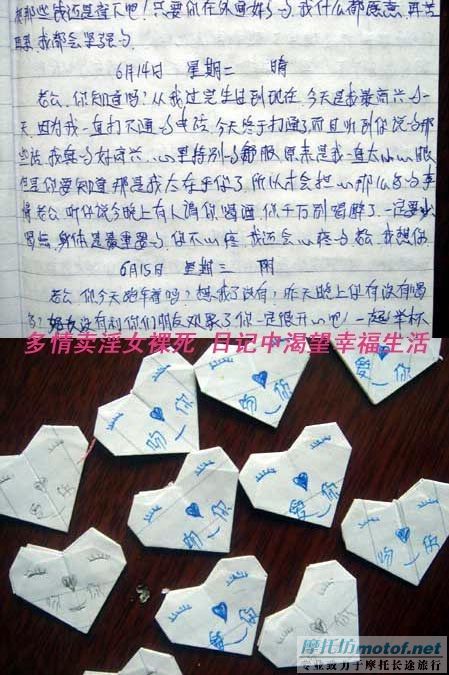 只要你在外面好的,我什么都愿意。再苦
再累,我都会坚强的.
6月14日 星期二 晴
老公,你知道吗?从我过完生日到现在,今天是我最高兴的一
天,因为我一直打不通的电话,今天终于打通了而且听到你说的那
些话,我真的好高兴...心里特别的舒服,原来是我一直太小心眼
但是你要知道那是我太在乎你了,所以才会
情老公,听你说今晚上有人请你喝酒,你千万别喝醉了,一定要少
喝点,身体是最重要的,你不心疼,我还会心疼的老公,我想你
6月15日 星期三 阴
老公,你今天跑车着吗?想我了没有,昨天晚上你有没有喝
多? 没有和你们朋友 你一定很开心吧!一起举杯
多情卖淫女裸死 日记中渴望幸福生活
爱你
吻你
吻你
爱你
吻你
吻你
爱你
摩托坊motof.net
专业致力于摩托长途旅行